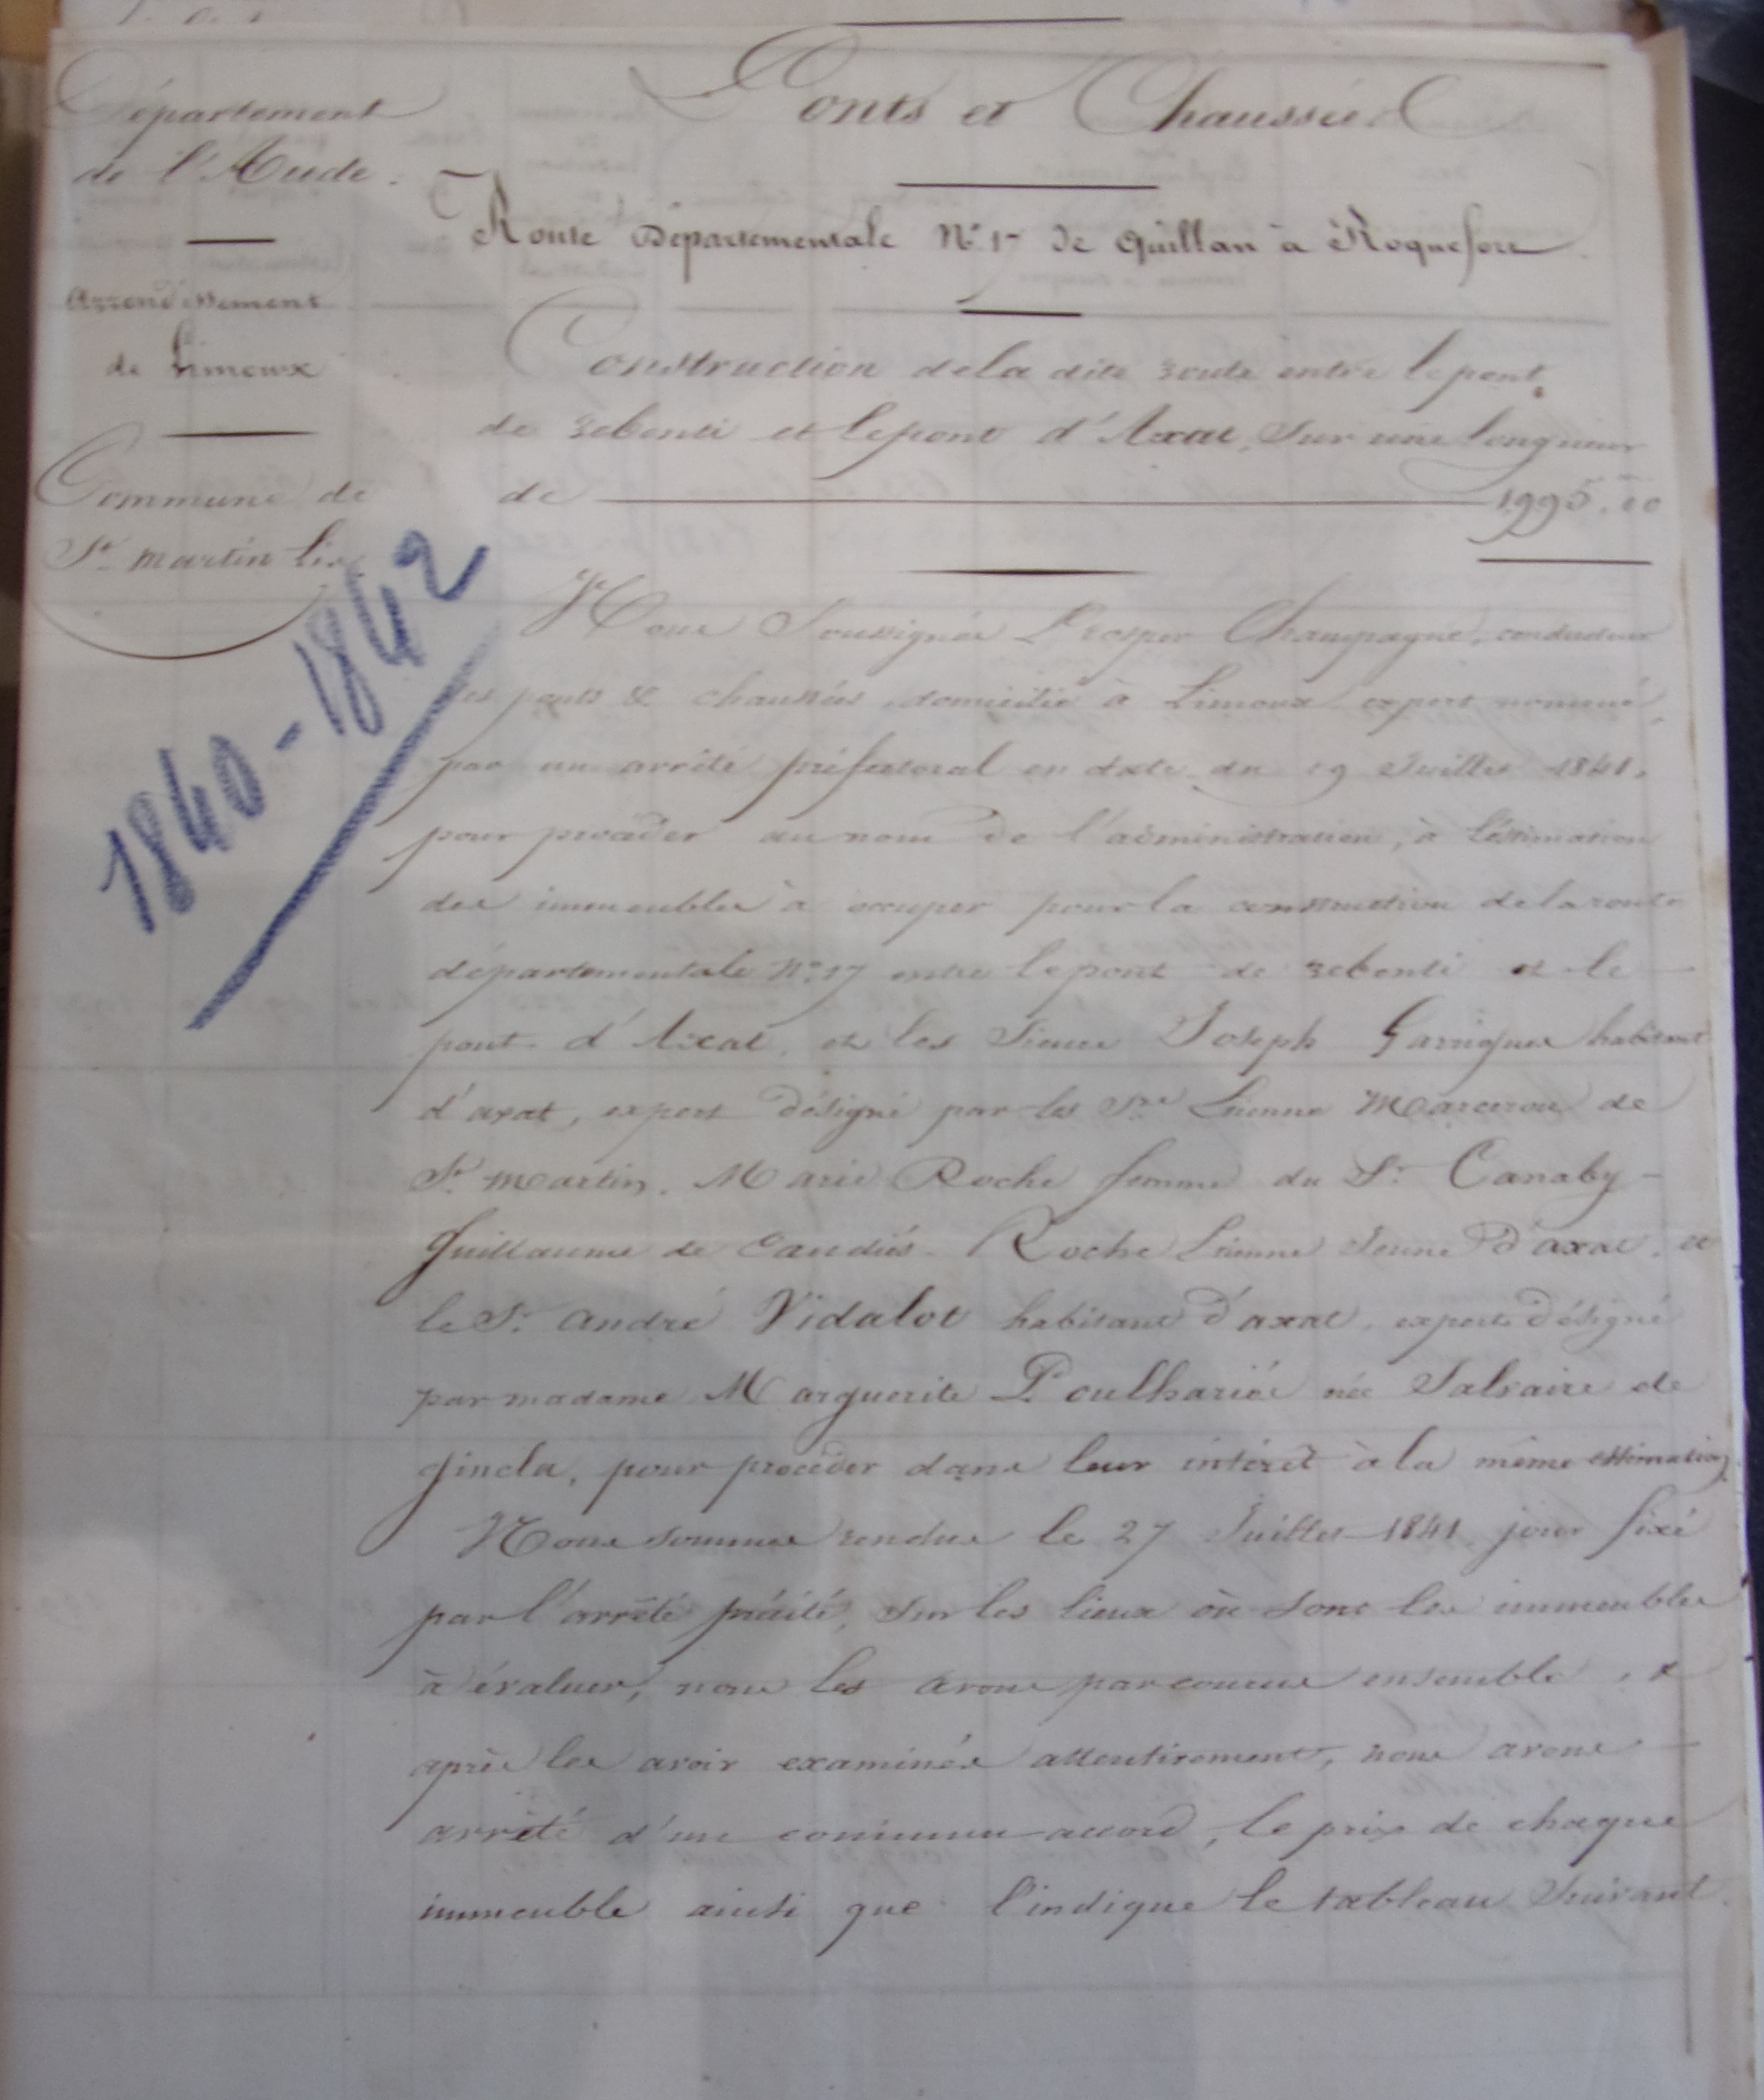 Département
de l'Aude.
Arrondissement
de Limoux
Commune de
St. martin lis
1840-1842
Ponts et Chaussées
Route Départementale N° 17 de Quillan à Roquefort.
Construction de la dite route entre le pont
de rebenti et le pont d'Axat, Sur une longueur
de 1995.m00
Nous Soussignés Prosper Champagne, conducteur
des ponts & chaussées domicilié à Limoux expert nommé
par un arrêté préfectoral en date du 19 Juillet 1841,
pour procéder au nom de l'administration, à l'estimation
des immeubles à occuper pour la construction de la route
départementale N° 17 entre le pont de rebenti et le
pont d'Axat, et les Sieurs Joseph Garrigues habitant
d'axat, expert désigné par les Srs Etienne Marcerou de
St. martin, Marie Roche femme du Sr. Canaby
Guillaume de Caudiès Roche Etienne Jeune d'axat, et
le Sr. André Vidalot habitant d'axat, expert désigné
par madame Marguerite Poulhariés née Salvaire de
gincla, pour procéder dans leur intérêt à la même estimation,
Nous sommes rendus le 27 Juillet 1841, jour fixé
par l'arrêté précité, sur les lieux où sont les immeubles
à évaluer, nous les avons parcourus ensemble, &
après les avoir examinés attentivement, nous avons
arrêté d'un commun accord, le prix de chaque
immeuble ainsi que l'indique le tableau Suivant.